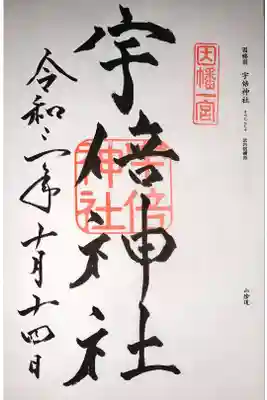 因幡国 宇倍神社
山陰道
因幡一宮
宇倍神社
宇倍神社
令和二年十月十四日